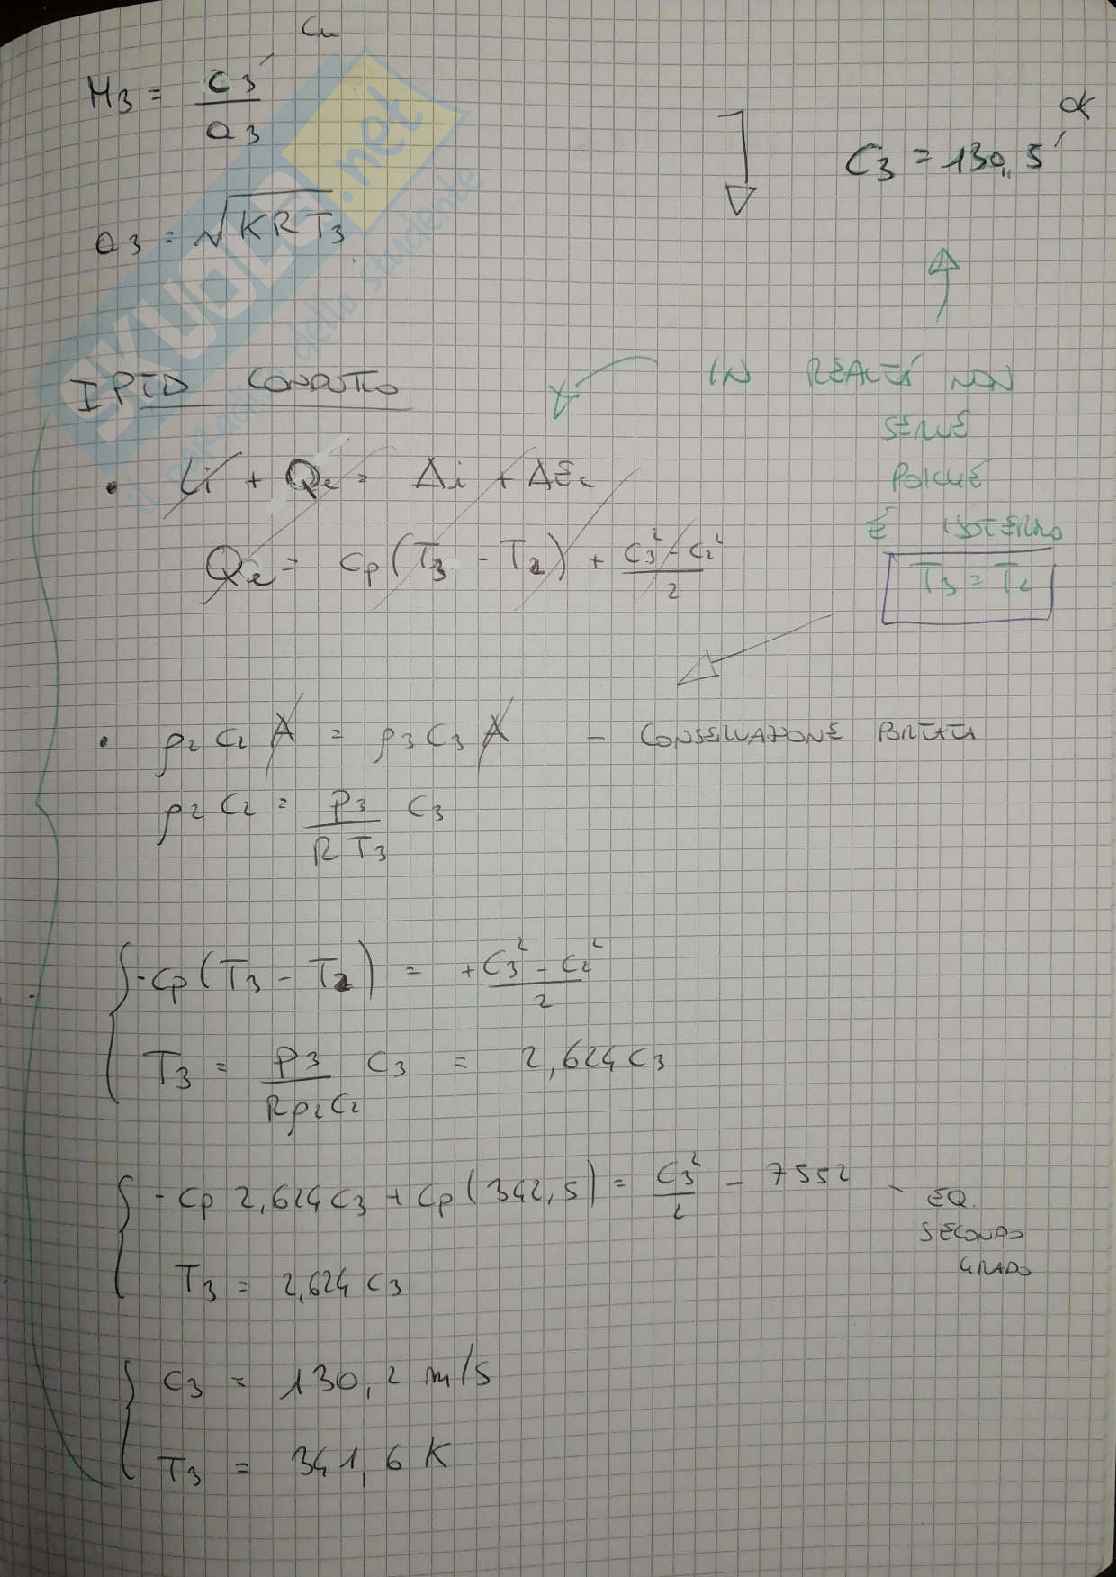 M3 = C3 / a3
C3 = 130,5 ok
a3 = √KRT3
IPTD CONDOTTO
IN REALTÀ NON
SERVE
POICHÉ
È ISOTERMO
T3 = T2
• Li + Qe = Δi + ΔEc
Qe = cp(T3 - T2) + (C3² - C2²) / 2
• ρ2 C2 A = ρ3 C3 A - CONSERVAZIONE PORTATA
ρ2 C2 = P3 / (R T3) C3
- cp(T3 - T2) = + (C3² - C2²) / 2
T3 = P3 / (R ρ2 C2) C3 = 2,624 C3
- cp 2,624 C3 + cp(342,5) = C3² / 2 - 7552 - EQ.
SECONDO
GRADO
T3 = 2,624 C3
C3 = 130,2 m/s
T3 = 341,6 K
SKUOLA.net